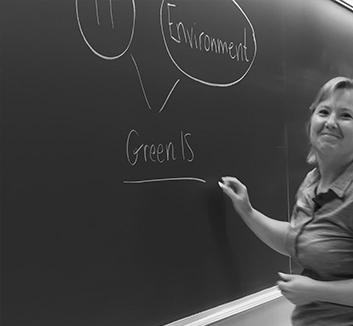 IT
Environment
Green IS